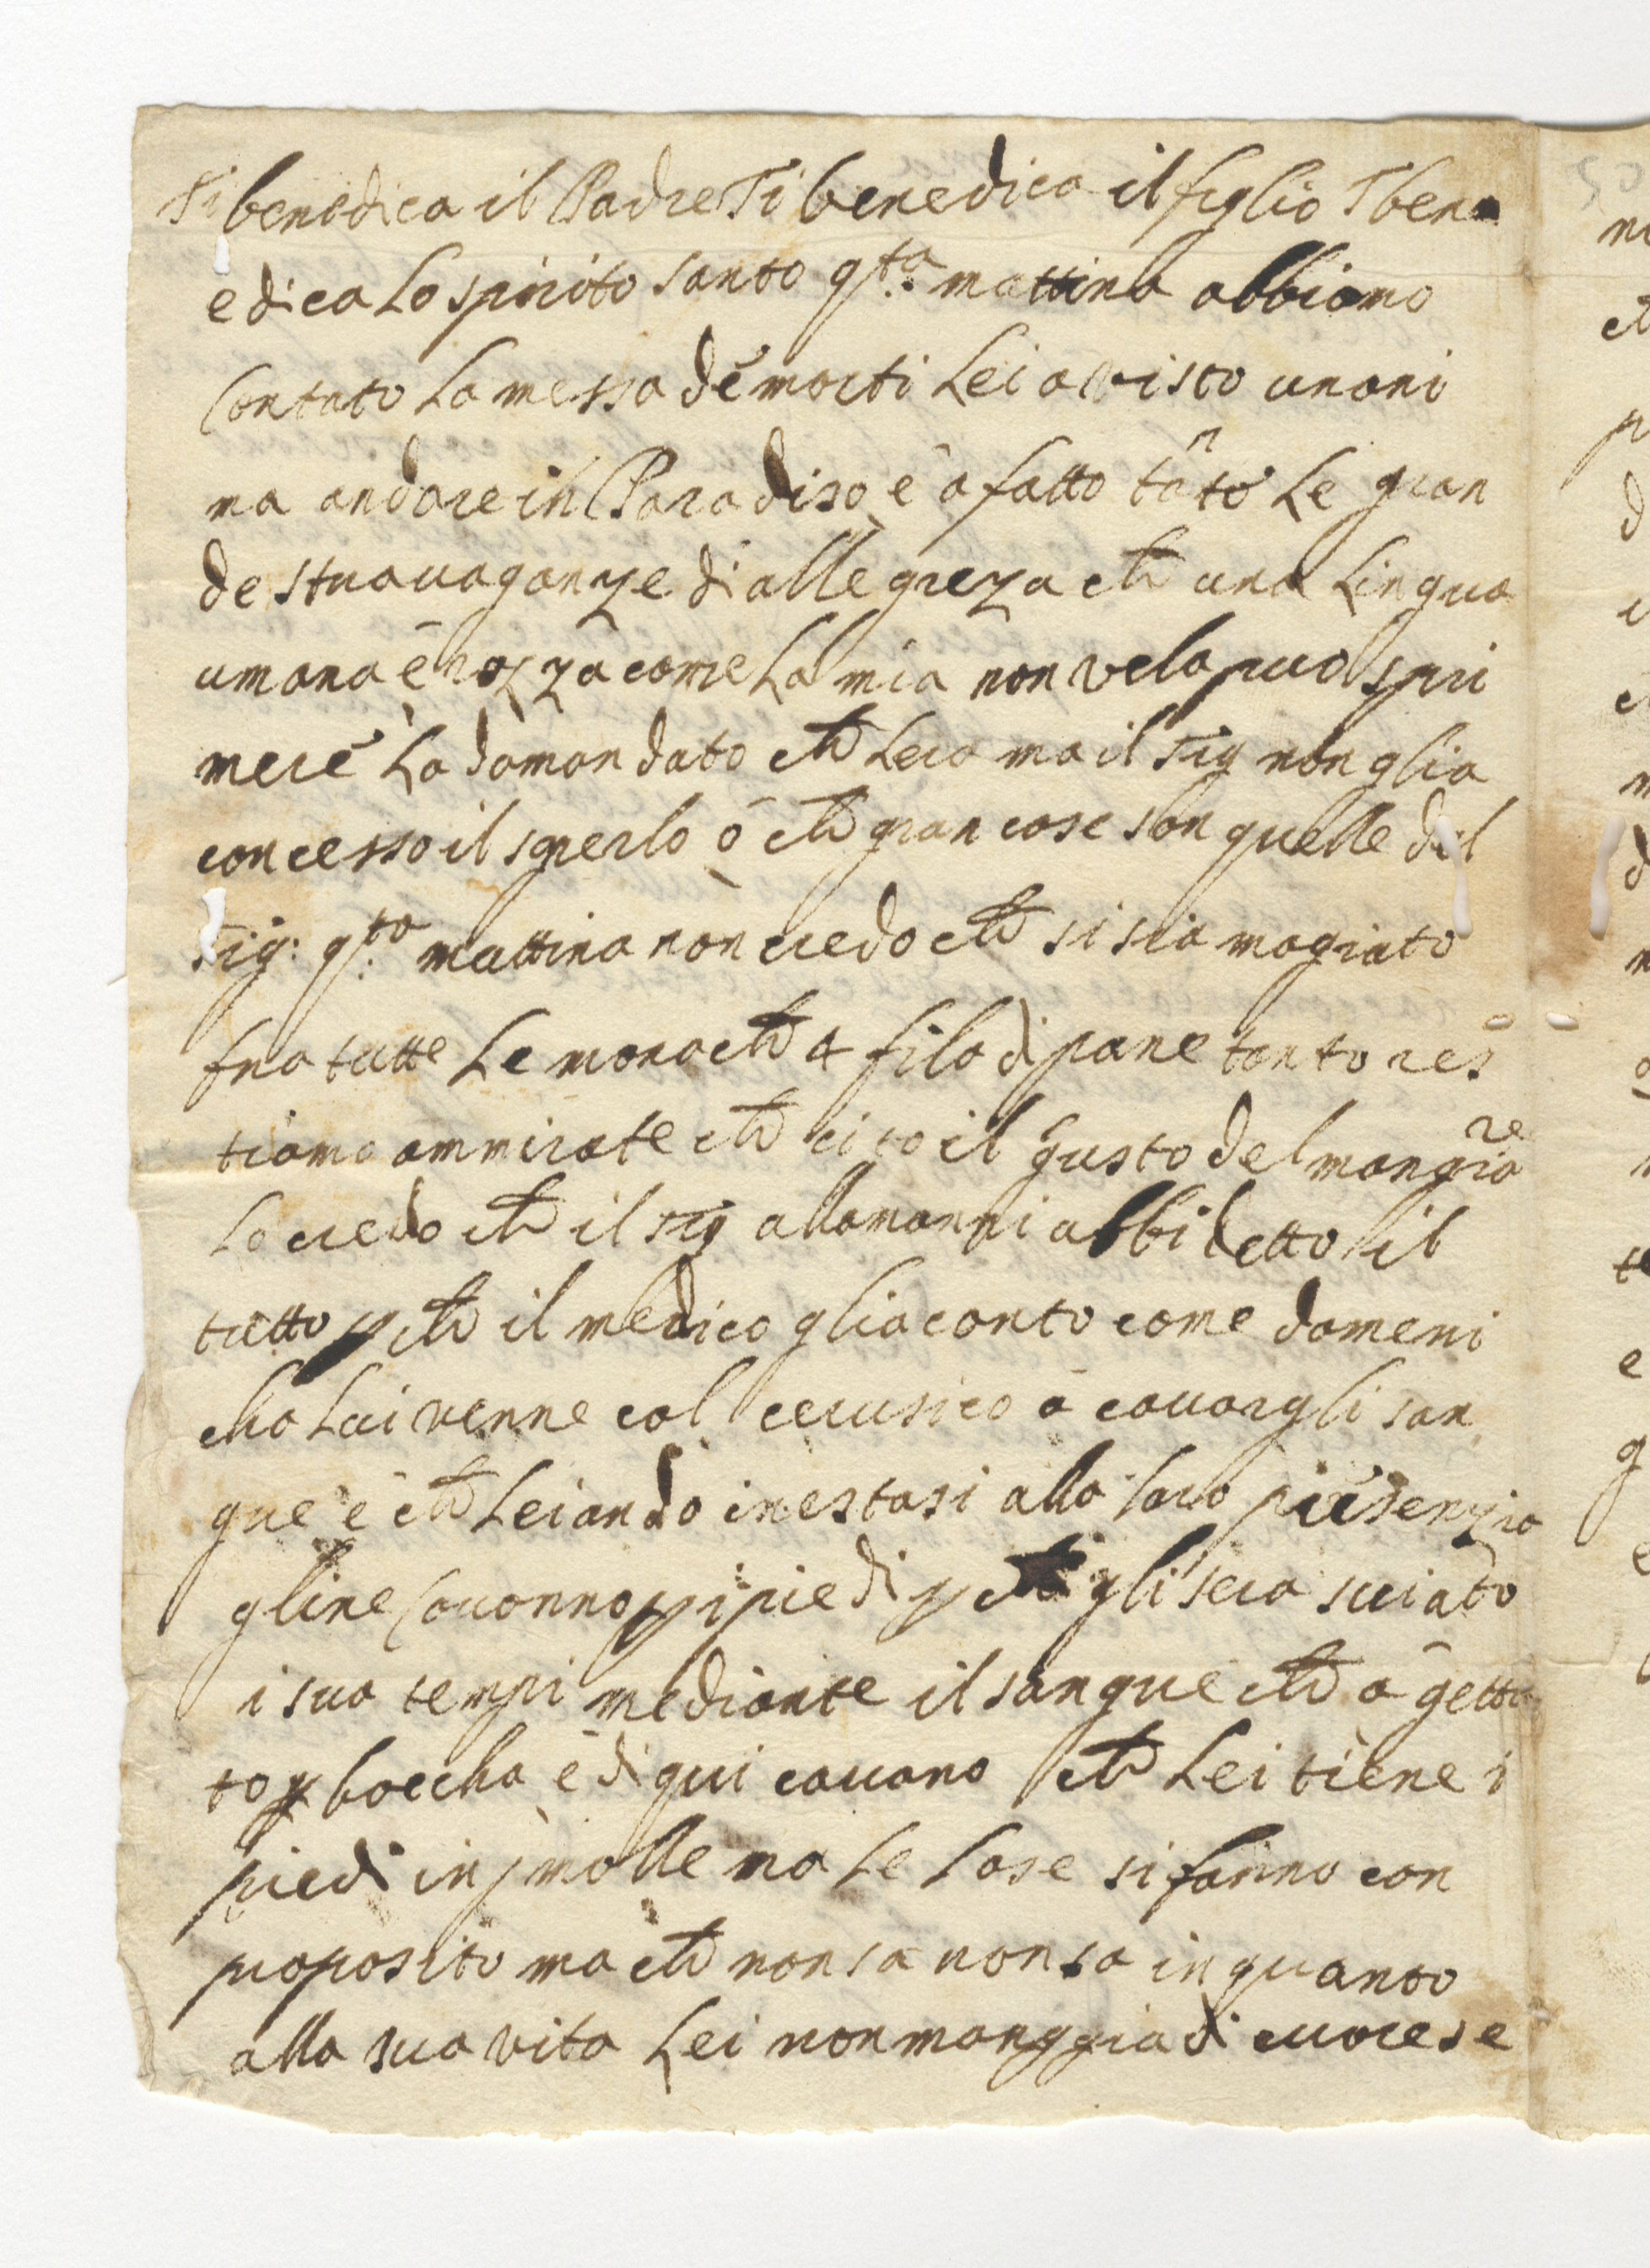 Ti benedica il Padre Ti benedica il figlio T ben
edica Lo spirito santo q.ta mattina abbiamo
Contato La messa de morti Lei a visto unani
ma andare in Paradiso è a fatto tanto Le gran
de stravaganze di allegreza che una Lingua
umana è rozza come La mia non vela puo spri
mere La domandato chi Lera ma il sig non glia
concesso il sperlo ò che gran cose son quelle del
Sig: q.ta mattina non credo che si sia magiato
fra tutte Le monache 4 fila di pane tanto res
tiamo ammirate che ci to il gusto del mangiare
Lo credo che il sig allamanni abbi detto il
tutto p che il medico glia conto come domeni
cha Lui venne col cerusico a cavargli san
gue è che Lei ando in estasi alla loro presenzia
gline Cavonno p i piedi p che gli sera sviato
i sua tempi mediante il sangue che a getta
to p boccha è di qui cavano che Lei tiene i
piedi in molle ma Le Cose si fanno con
proposito ma chi non sa non sa in quanto
alla sua vita Lei non manggia di cuore se